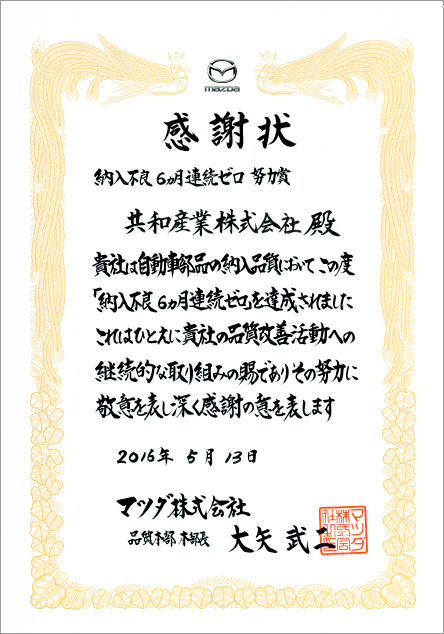 mazda
感謝状
納入不良6ヵ月連続ゼロ 努力賞
共和産業株式会社 殿
貴社は自動車部品の納入品質において この度
「納入不良6ヵ月連続ゼロ」を達成されました
これはひとえに貴社の品質改善活動への
継続的な取り組みの賜であり その努力に
敬意を表し深く感謝の意を表します
2016年 5月 13日
マツダ株式会社
品質本部 本部長 大矢 武二